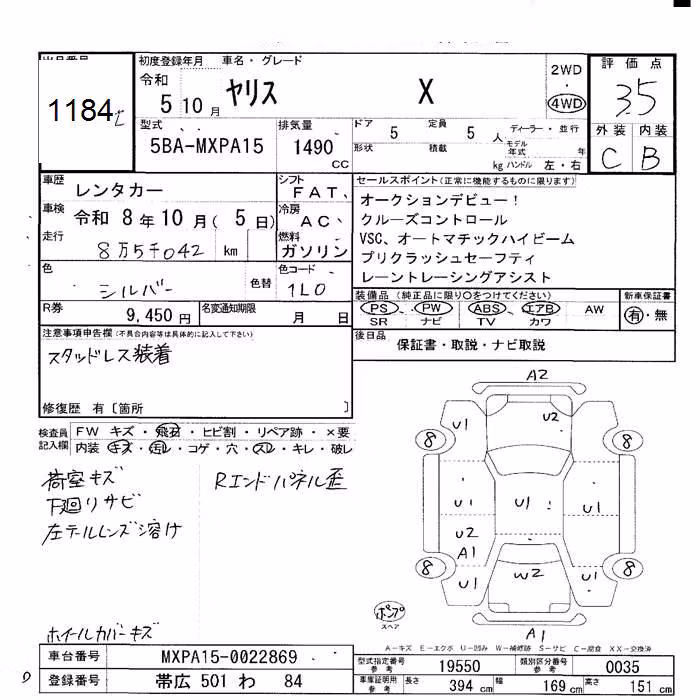 出品番号
1184
初度登録年月
令和
5 10 月
車名・グレード
ヤリス X
2WD
・
4WD
評価点
3.5
外装 内装
C B
型式
5BA-MXPA15
排気量
1490 CC
ドア 5 定員 5 人
形状 積載 kg
ディーラー・並行
モデル年式 年
ハンドル 左・右
車歴 レンタカー
車検 令和 8 年 10 月( 5 日)
走行 8万5千042 km
シフト FAT、
冷房 AC、
燃料 ガソリン
セールスポイント(正常に機能するものに限ります)
オークションデビュー!
クルーズコントロール
VSC、オートマチックハイビーム
プリクラッシュセーフティ
レーントレーシングアシスト
色 シルバー 色替
色コード 1L0
装備品 (純正品に限り○をつけてください)
PS、PW ABS、エアB AW
SR ナビ TV カワ
新車保証書
有・無
R券 9,450 円
名変通知期限 月 日
後日品 保証書・取説・ナビ取説
注意事項申告欄(不具合内容等は具体的に記入して下さい)
スタッドレス装着
修復歴 有〔箇所 〕
検査員記入欄
FW キズ・飛石・ヒビ割・リペア跡・×要
内装 キズ・汚レ・コゲ・穴・スレ・キレ・破レ
荷室キズ
下廻りサビ
左テールレンズ溶け
Rエンドパネル歪
ホイールカバーキズ
A2
U1 U2
8 8
U1 U1 U1
U2
A1
8 8
U1 W2 U1
A1
ポンプ
スペア
A-キズ E-エクボ U-凹み W-補修跡 S-サビ C-腐食 XX-交換済
車台番号 MXPA15-0022869
登録番号 帯広 501 わ 84
型式指定番号 参考 19550
類別区分番号 参考 0035
車庫証明用 参考 長さ 394 cm 幅 169 cm 高さ 151 cm